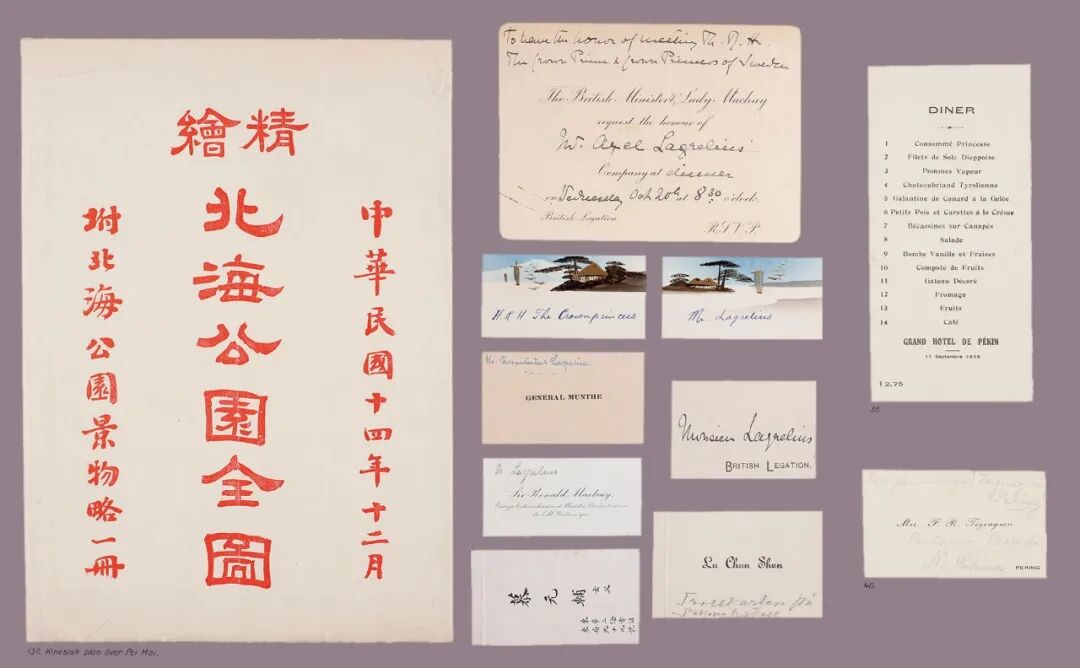 精繪
北海公園全圖
中華民國十四年十二月
附北海公園景物略一冊
136. Kinesisk plan över Pei Hai.
To have the honor of meeting Th. R. Hs.
The Crown Prince & Crown Princess of Sweden
The British Minister & Lady Macleay
request the honour of
Mr. Axel Lagrelius'
Company at dinner
on Wednesday Oct 20th at 8 30 o'clock.
British Legation
R.S.V.P.
H.R.H. The Crownprincess
Mr. Lagrelius
Lagrelius
GENERAL MUNTHE
Monsieur Lagrelius
BRITISH LEGATION,
M. Lagrelius
Sir Ronald Macleay,
Lu Chun Shen
慕元輔
玄父
DINER
1 Consommé Princesse
2 Filets de Sole Dieppoise
3 Pommes Vapeur
4 Chateaubriand Tyrolienne
5 Galantine de Canard à la Gelée
6 Petits Pois et Carottes à la Crème
7 Bécassines sur Canapés
8 Salade
9 Bombe Vanille et Fraises
10 Compote de Fruits
11 Gateau Décoré
12 Fromage
13 Fruits
14 Café
GRAND HÔTEL DE PÉKIN
11 Septembre 1926
12.75
Mrs. F. R. Tegengren
PEKING
40.